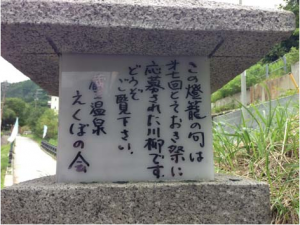 この燈籠の句は
オ七回とっておき祭に
応募された川柳です
どうぞ
ご覧下さい.
温泉
えくぼの会